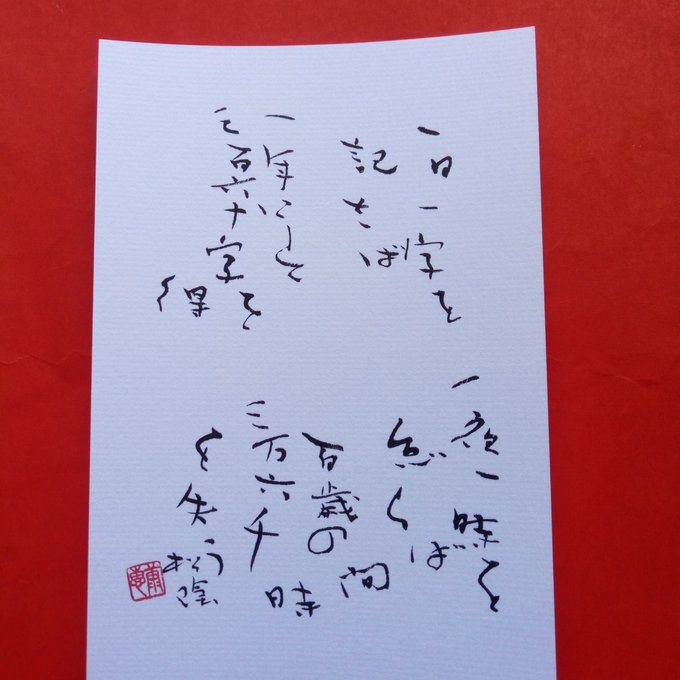 一日一字を
記さば
一年にして
三百六十字を
得
一夜一時を
怠らば
百歳の間
三万六千時
を失う
松陰